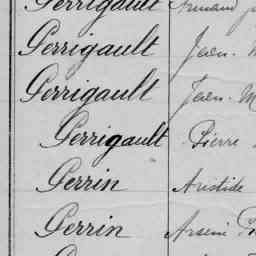 Perrigault Armand
Perrigault Jean-M
Perrigault Jean-M
Perrigault Pierre
Perrin Aristide
Perrin Arsène